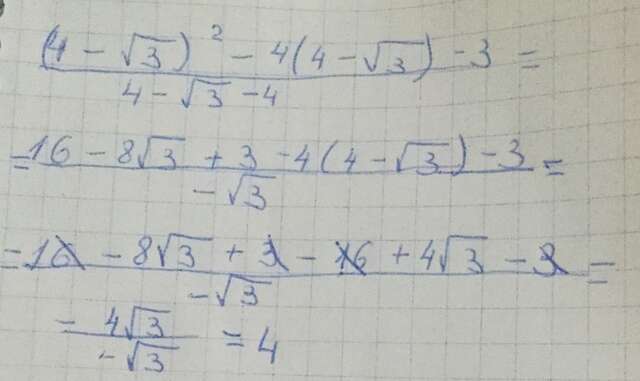 ((4 - √3)² - 4(4 - √3) - 3) / (4 - √3 - 4) =
= (16 - 8√3 + 3 - 4(4 - √3) - 3) / (-√3) =
= (16 - 8√3 + 3 - 16 + 4√3 - 3) / (-√3) =
(- 4√3) / (-√3) = 4